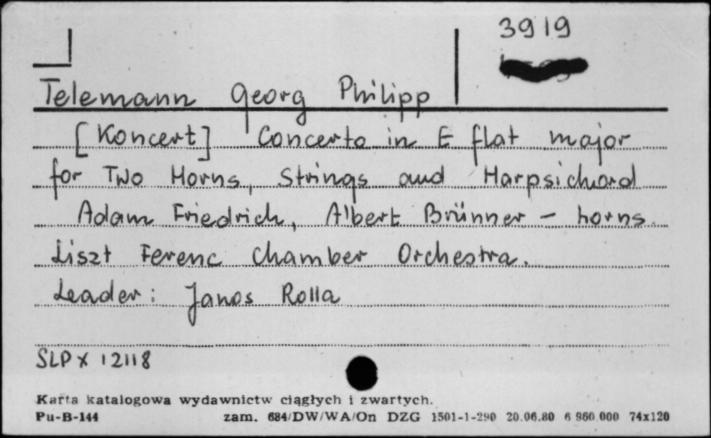 3919
Telemann Georg Philipp
[Koncert] Concerto in E flat major
for Two Horns, Strings and Harpsichord
Adam Friedrich, Albert Brünner – horns
Liszt Ferenc Chamber Orchestra.
Leader: Janos Rolla
SLPX 12118
Karta katalogowa wydawnictw ciągłych i zwartych.
Pu-B-144 zam. 684/DW/WA/On DZG 1501-1-290 20.06.80 6 960 000 74x120